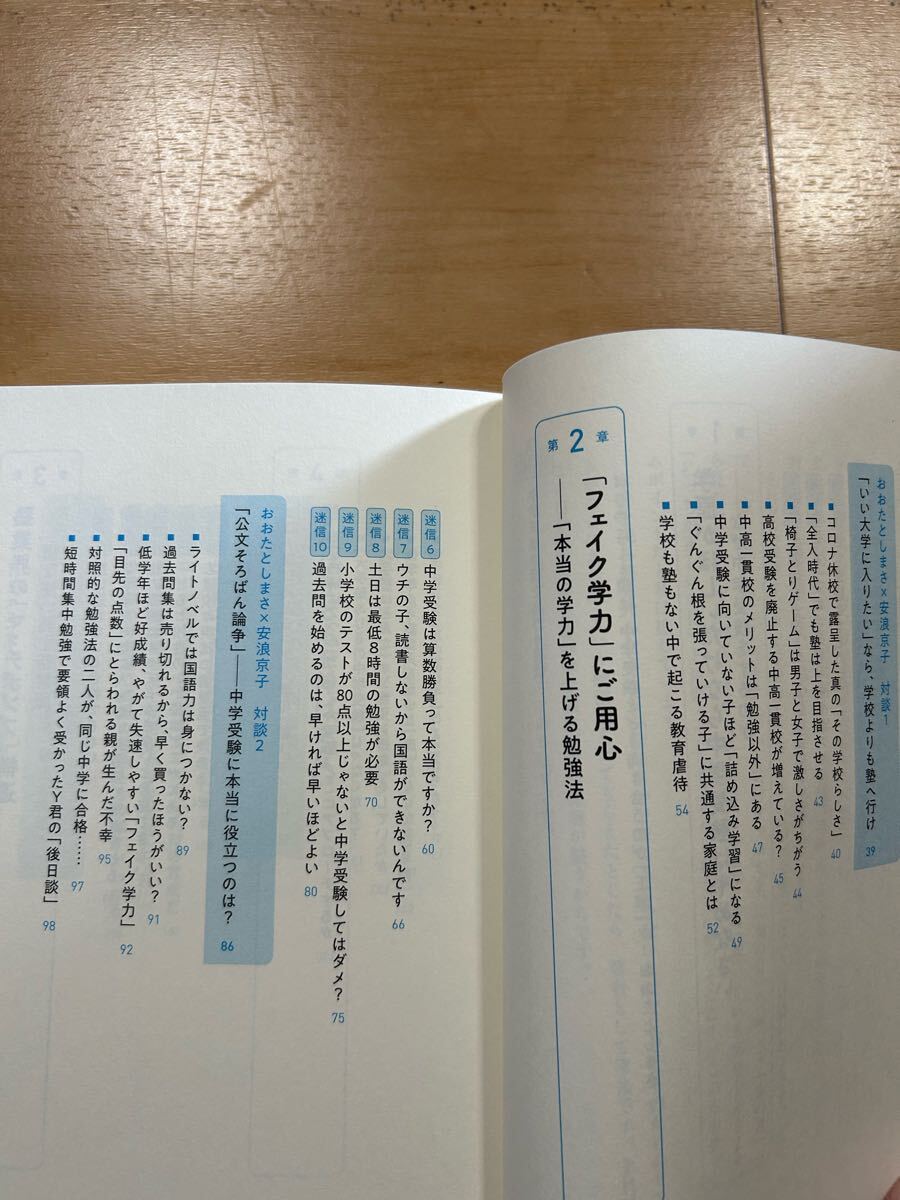 おおたとしまさ×安浪京子 対談1
「いい大学に入りたい」なら、学校よりも塾へ行け 39
■コロナ休校で露呈した真の「その学校らしさ」 40
■「全入時代」でも塾は上を目指させる 43
■「椅子とりゲーム」は男子と女子で激しさがちがう 44
■高校受験を廃止する中高一貫校が増えている? 45
■中高一貫校のメリットは「勉強以外」にある 47
■中学受験に向いていない子ほど「詰め込み学習」になる 49
■「ぐんぐん根を張っていける子」に共通する家庭とは 52
■学校も塾もない中で起こる教育虐待 54
第2章
「フェイク学力」にご用心
――「本当の学力」を上げる勉強法
迷信6 中学受験は算数勝負って本当ですか? 60
迷信7 ウチの子、読書しないから国語ができないんです 66
迷信8 土日は最低8時間の勉強が必要 70
迷信9 小学校のテストが80点以上じゃないと中学受験してはダメ? 75
迷信10 過去問を始めるのは、早ければ早いほどよい 80
おおたとしまさ×安浪京子 対談2
「公文そろばん論争」――中学受験に本当に役立つのは? 86
■ライトノベルでは国語力は身につかない? 89
■過去問集は売り切れるから、早く買ったほうがいい? 91
■低学年ほど好成績、やがて失速しやすい「フェイク学力」 92
■「目先の点数」にとらわれる親が生んだ不幸 95
■対照的な勉強法の二人が、同じ中学に合格…… 97
■短時間集中勉強で要領よく受かったY君の「後日談」 98